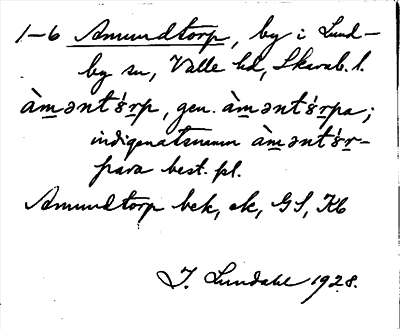 1-6 Amundtorp, by i Lund-
by sn, Valle hd, Skarab. l.
àmənt⁠s̀rp, gen. àmənts̀rpa;
indigenatsnamn àmənts̀r-
para best. pl.
Amundtorp bek, ek, GS, Kb
I. Lundahl 1928.